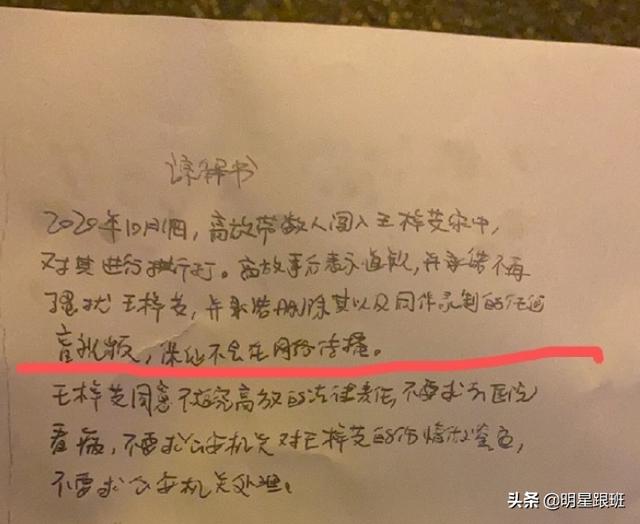 谅解书
2020年10月1日,高放带数人闯入王梓芠家中,
对其进行殴打。高放事后表示道歉,并承诺不再
骚扰王梓芠,并承诺删除其以及同伴录制的任何
音视频,保证不会在网络传播。
王梓芠同意不追究高放的法律责任,不要求去医院
看病,不要求公安机关对王梓芠的伤情做鉴定,
不要求公安机关处理。
头条 @明星跟班